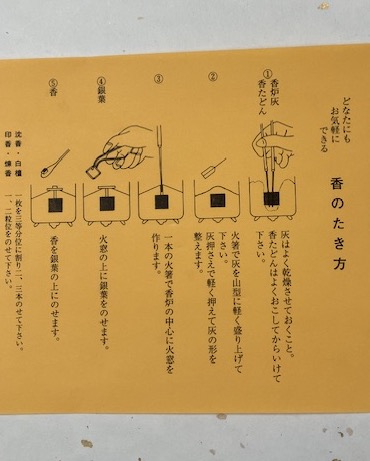 どなたにも
お気軽に
できる
香のたき方
①
香炉灰
香たどん
灰はよく乾燥させておくこと。
香たどんはよくおこしてからいけて
下さい。
②
火箸で灰を山型に軽く盛り上げて
下さい。
灰押さえで軽く押えて灰の形を
整えます。
③
一本の火箸で香炉の中心に火窓を
作ります。
④
銀葉
火窓の上に銀葉をのせます。
⑤
香
香を銀葉の上にのせます。
沈香・白檀
一枚を三等分位に割り二、三本のせて下さい。
印香・煉香
一、二粒位をのせて下さい。